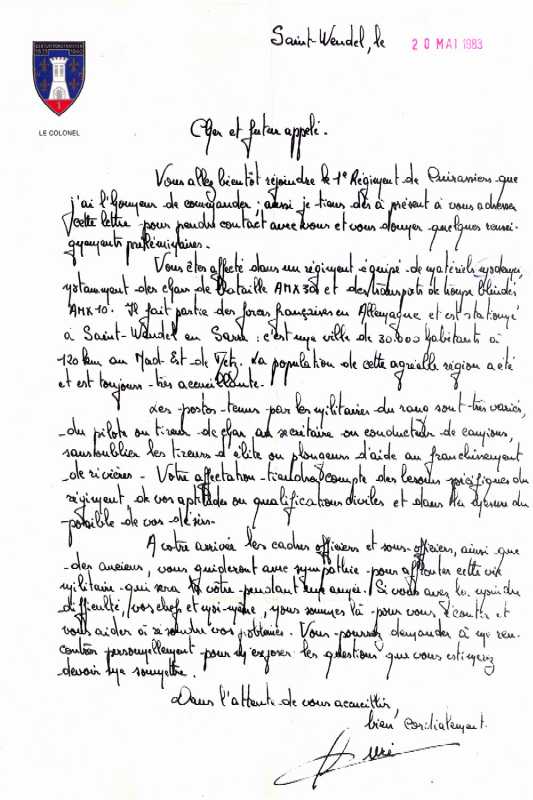 Saint-Wendel, le 20 MAI 1983
1
LE COLONEL
Cher et futur appelé.
Vous allez bientôt rejoindre le 1er Régiment de Cuirassiers que
j'ai l'honneur de commander ; aussi je tiens dès à présent à vous adresser
cette lettre pour prendre contact avec vous et vous donner quelques rensei-
gnements préliminaires.
Vous êtes affecté dans un régiment équipé de matériels modernes,
notamment des chars de bataille AMX 30 et des transports de troupe blindés
AMX 10. Il fait partie des forces françaises en Allemagne et est stationné
à Saint-Wendel en Sarre : c'est une ville de 30.000 habitants à
120 km au Nord Est de Metz. La population de cette agréable région a été
et est toujours très accueillante.
Les postes tenus par les militaires du rang sont très variés,
du pilote ou tireur de char, au secrétaire ou conducteur de camions,
sans oublier les tireurs d'élite ou plongeurs d'aide au franchissement
de rivières. Votre affectation tiendra compte des besoins spécifiques du
régiment, de vos aptitudes ou qualifications civiles et dans la mesure du
possible de vos désirs.
A votre arrivée les cadres officiers et sous-officiers, ainsi que
des anciens, vous guideront avec sympathie pour affronter cette vie
militaire qui sera la vôtre pendant une année. Si vous avez la moindre
difficulté, vos chefs et moi-même, nous sommes là pour vous écouter et
vous aider à résoudre vos problèmes. Vous pourrez demander à me ren-
contrer personnellement pour m'exposer les questions que vous estimerez
devoir me soumettre.
Dans l'attente de vous accueillir,
bien cordialement.